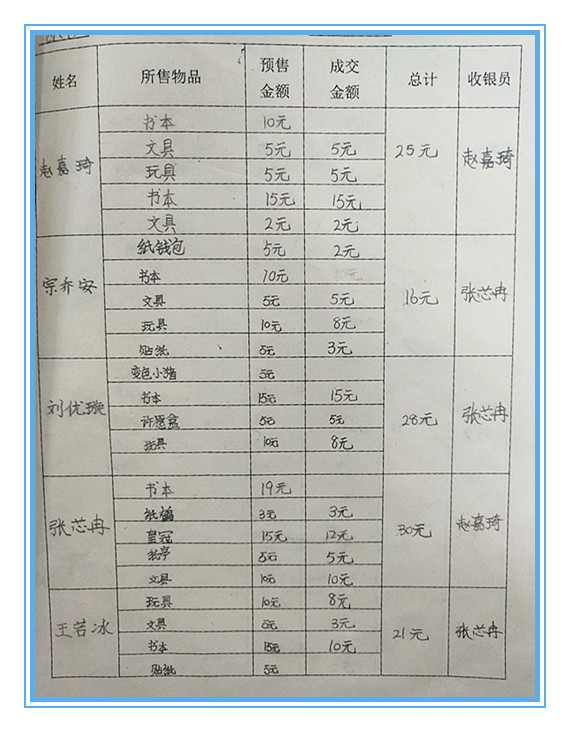 姓名 所售物品 预售金额 成交金额 总计 收银员
赵嘉琦 书本 10元 25元 赵嘉琦
文具 5元 5元
玩具 5元 5元
书本 15元 15元
文具 2元 2元
宗乔安 纸钱包 5元 2元 16元 张芯冉
书本 10元
文具 5元 5元
玩具 10元 8元
贴纸 5元 3元
刘优璇 变色小猪 5元 28元 张芯冉
书本 15元 15元
许愿盒 5元 5元
玩具 10元 8元
张芯冉 书本 19元 30元 赵嘉琦
纸鹤 3元 3元
皇冠 15元 12元
5元 5元
文具 10元 10元
王若冰 玩具 10元 8元 21元 张芯冉
文具 5元 3元
书本 15元 10元
贴纸 5元